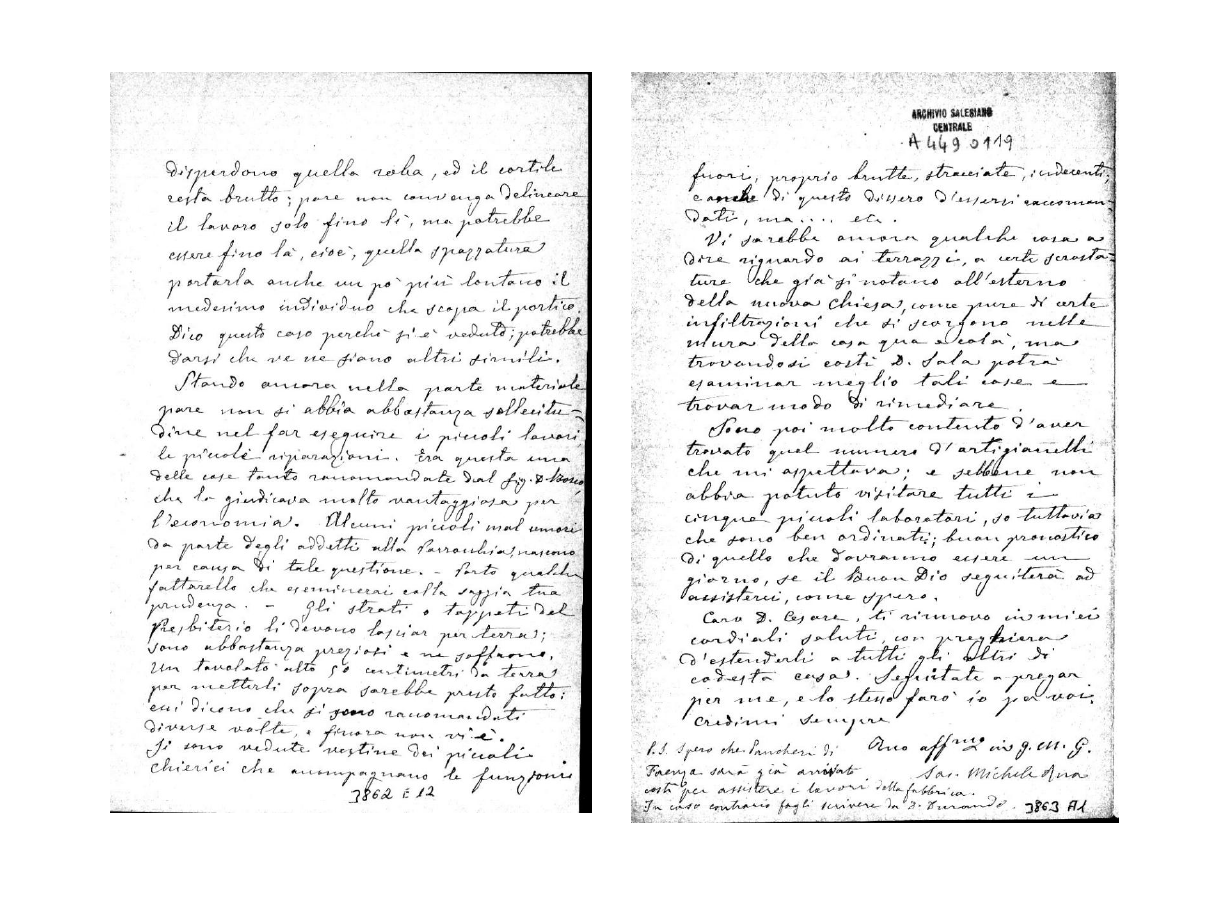 disperdono quella roba, ed il cortile
resta brutto; pare non convenga delineare
il lavoro solo fino lì, ma potrebbe
essere fino là, cioè, quella spazzatura
portarla anche un po' più lontano il
medesimo individuo che scopa il portico.
Dico questo caso perchè si è veduto; potrebbe
darsi che ve ne siano altri simili.
Stando ancora nella parte materiale
pare non si abbia abbastanza sollecitu-
dine nel far eseguire i piccoli lavori,
le piccole riparazioni. Era questa una
delle cose tanto raccomandate dal Sig. D. Bosco,
che la giudicava molto vantaggiosa per
l'economia. Alcuni piccoli mal umori
da parte degli addetti alla Parrocchia, nascono
per causa di tale questione. - Porto qualche
fattarello che esaminerai colla saggia tua
prudenza. - Gli strati o tappeti del
Presbiterio li devono lasciar per terra;
sono abbastanza preziosi e ne soffrono.
Un tavolato alto 50 centimetri da terra
per metterli sopra sarebbe presto fatto:
essi dicono che si sono raccomandati
diverse volte, e finora non vi è.
Si sono vedute vestine dei piccoli
chierici che accompagnano le funzioni
3862 E 12
ARCHIVIO SALESIANO
CENTRALE
A 449 0119
fuori, proprio brutte, stracciate, indecenti;
e anche di questo dissero d'essersi raccoman-
dati, ma.... etc.
Vi sarebbe ancora qualche cosa a
dire riguardo ai terrazzi, a certe scrosta-
ture che già si notano all'esterno
della nuova Chiesa, come pure di certe
infiltrazioni che si scorgono nelle
mura della casa qua e colà, ma
trovandosi costì D. Sala potrà
esaminar meglio tali cose e
trovar modo di rimediare.
Sono poi molto contento d'aver
trovato quel numero d'artigianelli
che mi aspettava; e sebbene non
abbia potuto visitare tutti i
cinque piccoli laboratori, so tuttavia
che sono ben ordinati; buon pronostico
di quello che dovranno essere un
giorno, se il Buon Dio seguiterà ad
assisterci, come spero.
Caro D. Cesare, ti rinnovo i miei
cordiali saluti, con preghiera
d'estenderli a tutti gli altri di
codesta casa. Seguitate a pregar
per me, e lo stesso farò io per voi.
Credimi sempre
Tuo aff.mo in G. M. G.
Sac. Michele Rua
P.S. Spero che Pancheri di
Faenza sarà già arrivato
costì per assistere i lavori della fabbrica.
In caso contrario fagli scrivere da D. Durando.
3863 A1